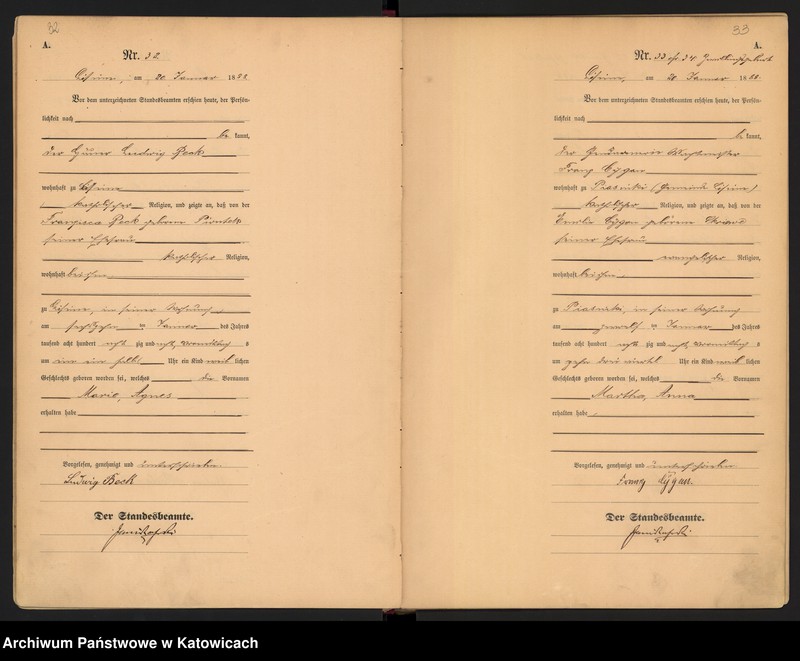 32
A.
Nr. 32.
am 20. Januar 188
Vor dem unterzeichneten Standesbeamten erschien heute, der Persön-
lichkeit nach
be kannt,
der Ludwig Beck
wohnhaft zu
katholischer Religion, und zeigte an, daß von der
Francisca Beck geborene
seiner Ehefrau
katholischer Religion,
wohnhaft bei ihm
zu in seiner Wohnung
am sechszehn ten Januar des Jahres
tausend acht hundert acht zig und acht, Vormittag s
um ein ein halb Uhr ein Kind weib lichen
Geschlechts geboren worden sei, welches die Vornamen
Marie, Agnes
erhalten habe
Vorgelesen, genehmigt und unterschrieben
Ludwig Beck
Der Standesbeamte.
33
A.
Nr. 33
am 20 Januar 188
Vor dem unterzeichneten Standesbeamten erschien heute, der Persön-
lichkeit nach
be kannt,
der
Franz Cygan
wohnhaft zu (Gemeinde
katholischer Religion, und zeigte an, daß von der
Emilie Cygan geborene
seiner Ehefrau
evangelischer Religion,
wohnhaft bei ihm
zu in seiner Wohnung
am zwölf ten Januar des Jahres
tausend acht hundert acht zig und acht, Vormittag s
um zehn drei viertel Uhr ein Kind weib lichen
Geschlechts geboren worden sei, welches die Vornamen
Martha, Anna
erhalten habe
Vorgelesen, genehmigt und unterschrieben
Franz Cygan.
Der Standesbeamte.
Archiwum Państwowe w Katowicach